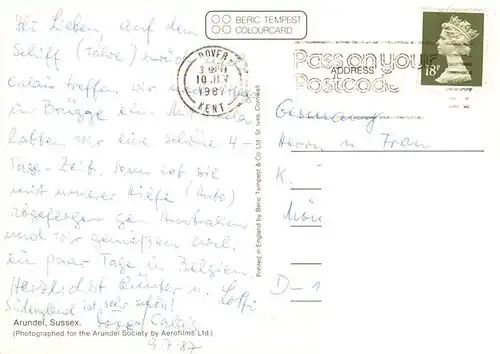 BERIC TEMPEST
COLOURCARD
Ihr Lieben, auf dem
Schiff (Fähre) zurück
Calais treffen wir
in Brügge ein.
hatten wir eine schöne 4-
Tage-Zeit. Nun ist sie
mit unserer Hilfe (Auto)
abgeflogen gen Australien
und wir genießen noch
ein paar Tage in Belgien.
Herzlichst Günter u. Lotti
Südengland ist sehr schön!
Calais
9.7.87
Arundel, Sussex.
(Photographed for the Arundel Society by Aerofilms Ltd.)
Printed in England by Beric Tempest & Co Ltd. St. Ives Cornwall
DOVER
10 JLY
1987
KENT
Pass on your
Postcode
ADDRESS
18P
Germany
Herrn u. Frau
K.
Mön
D-1